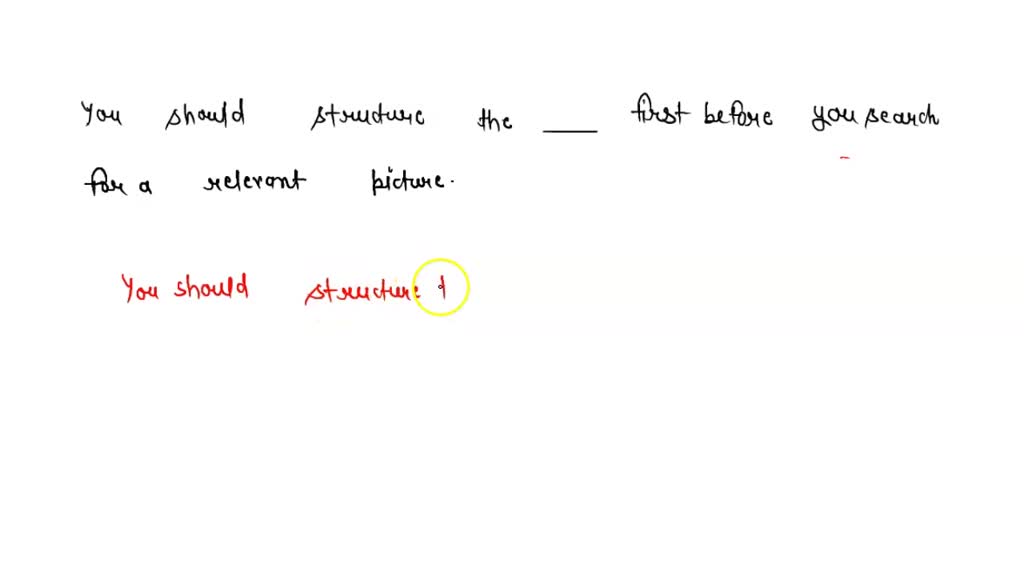 You should structure the ____ first before you search
for a relevant picture.
You should structure